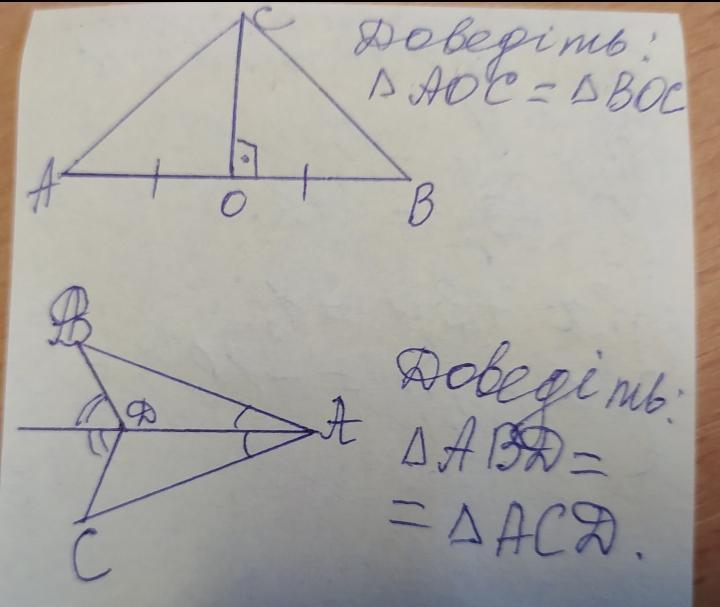 C
Доведіть:
△AOC = △BOC
A
O
B
B
D
A
C
Доведіть:
△ABD =
= △ACD.